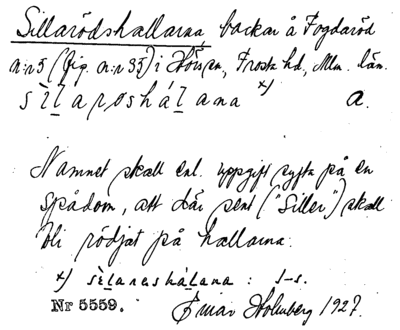 Sillarödshallarna backar å Fogdaröd
n:r 5 (fig. n:r 35) i Hörs sn, Frosta hd, Mlm. län.
sìl̲aroshál̲ana x) a.
Namnet skall enl. uppgift syfta på en
spådom, att där sent ("siller") skall
bli rödjat på hallarna.
x) sèl̲areshál̲ana : s-s.
Nr 5559. Einar Holmberg 1927.